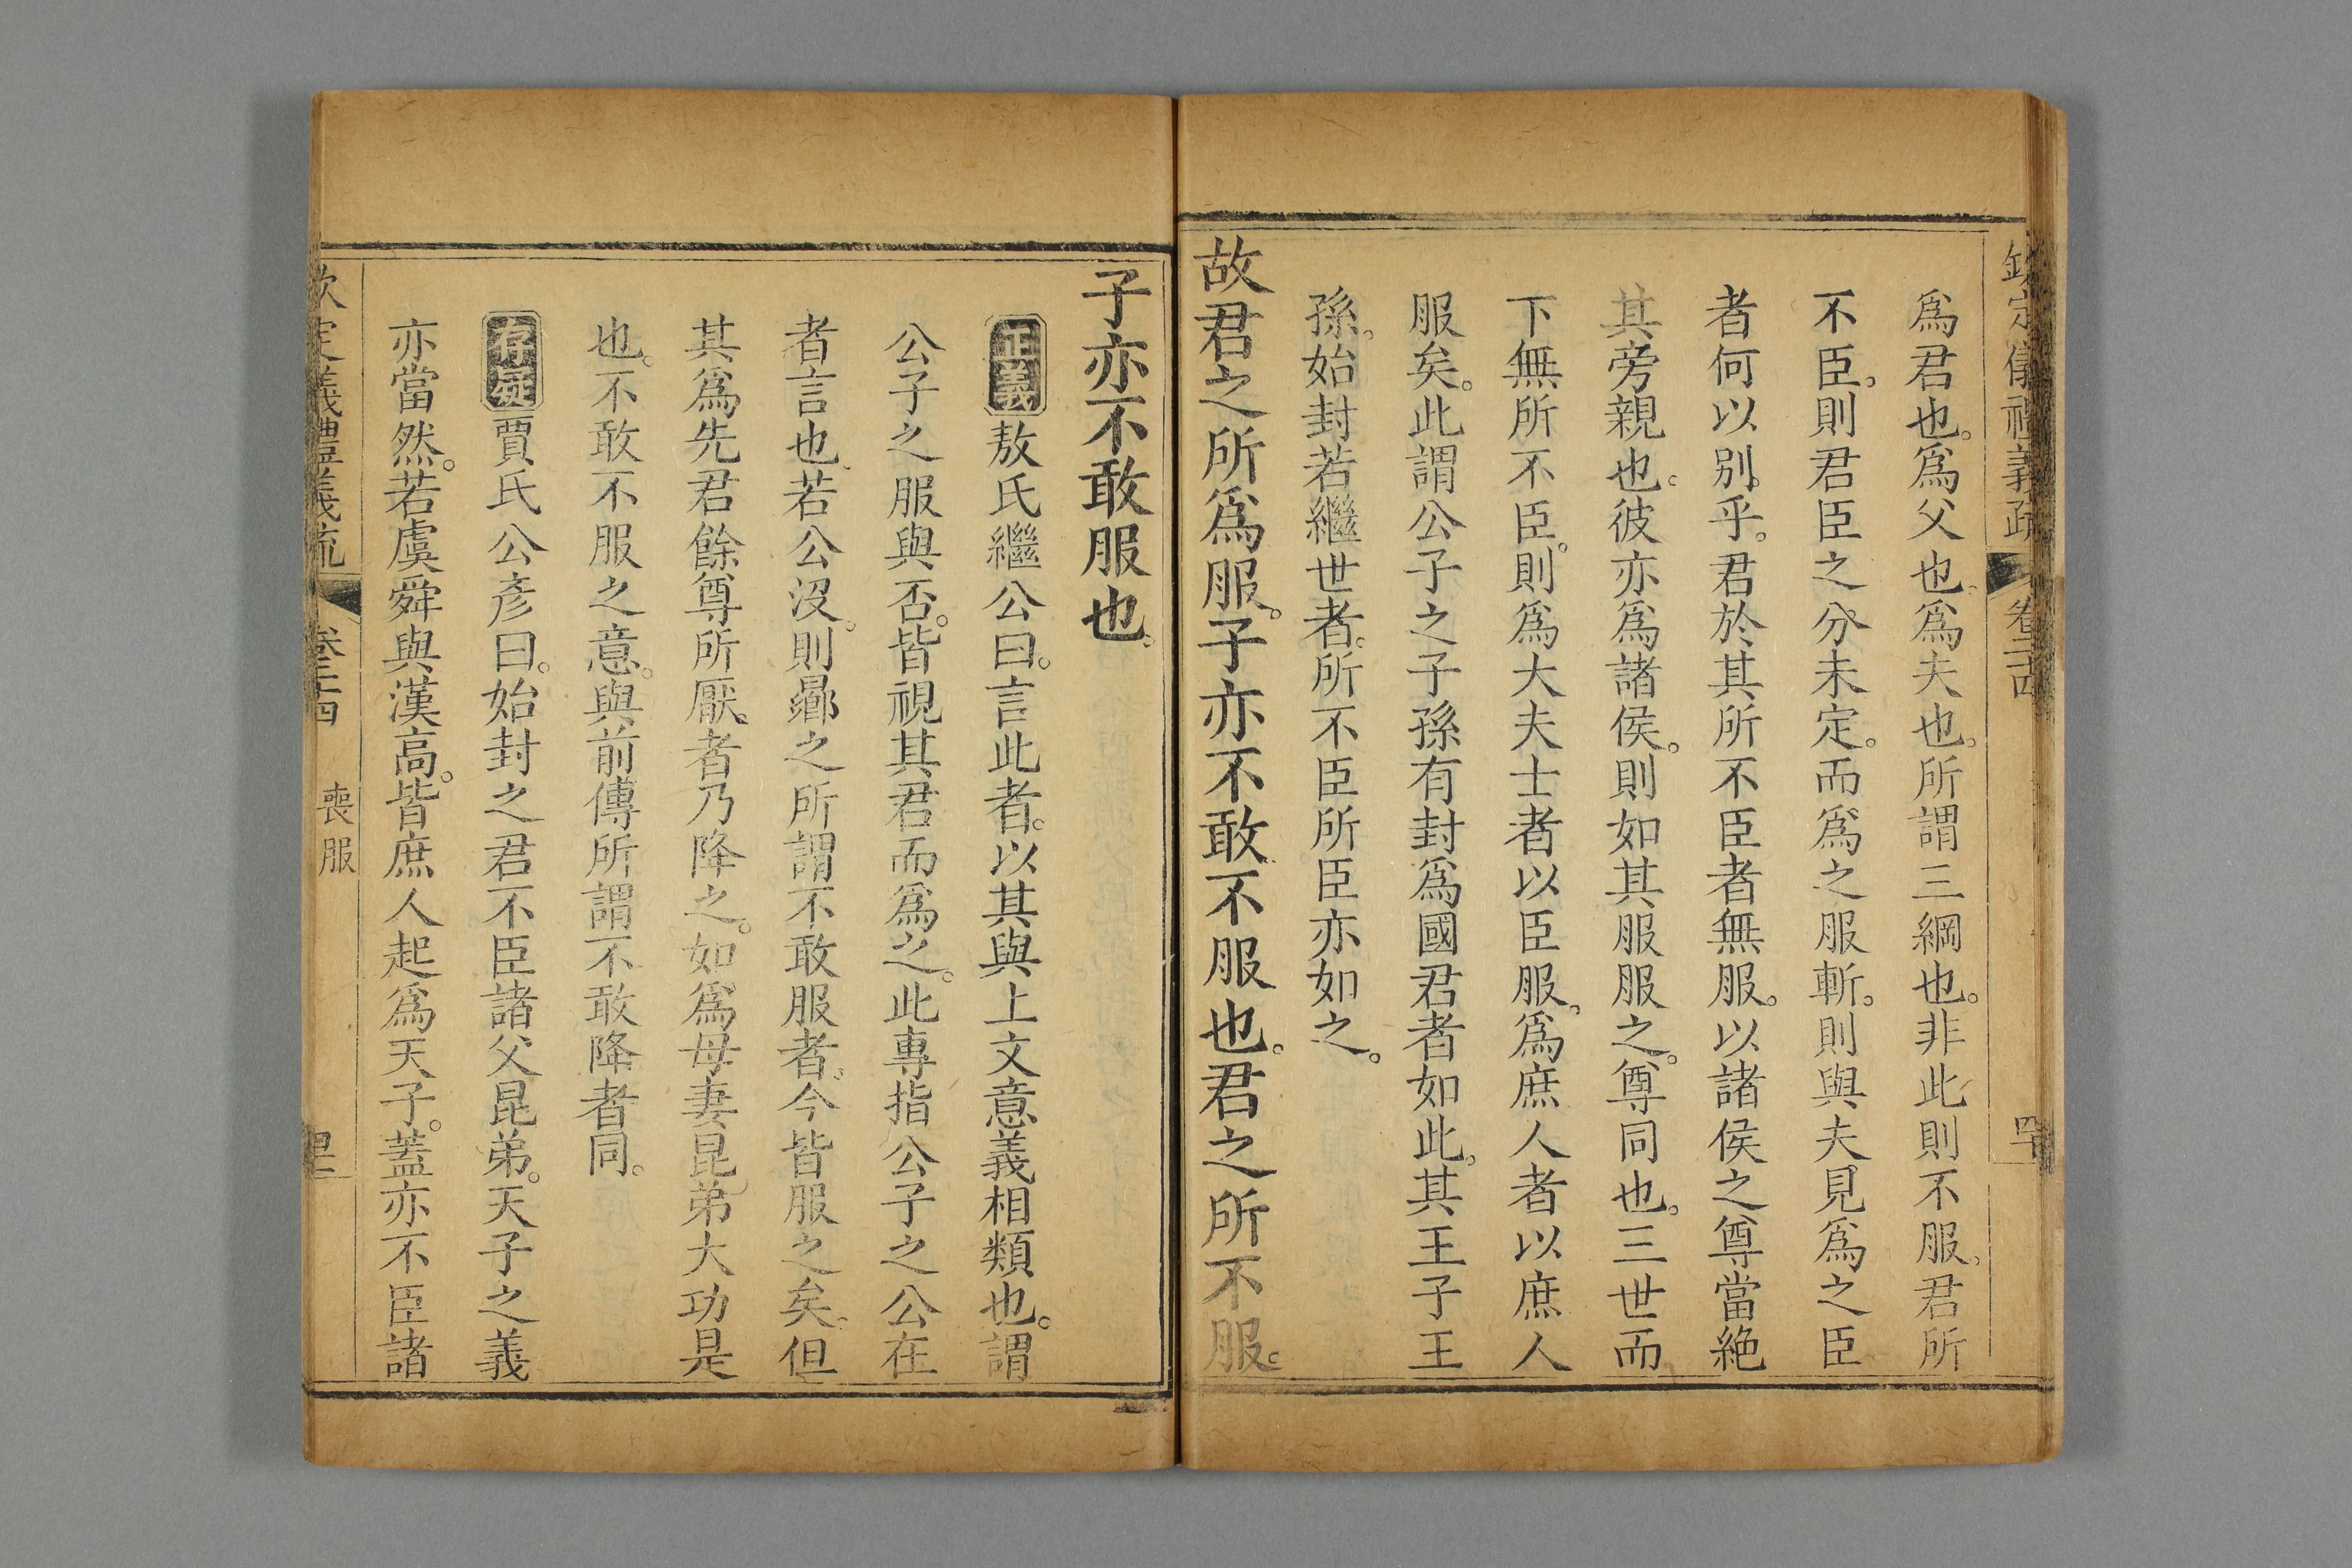 欽定儀禮義疏 卷二十四 四十
爲君也。爲父也。爲夫也。所謂三綱也。非此則不服。君所
不臣。則君臣之分未定。而爲之服斬。則與夫見爲之臣
者何以別乎。君於其所不臣者無服。以諸侯之尊當絶
其旁親也。彼亦爲諸侯。則如其服服之。尊同也。三世而
下無所不臣。則爲大夫士者以臣服。爲庶人者以庶人
服矣。此謂公子之子孫有封爲國君者如此。其王子王
孫。始封若繼世者。所不臣所臣亦如之。
故君之所爲服。子亦不敢不服也。君之所不服。
子亦不敢服也。
正義敖氏繼公曰。言此者。以其與上文意義相類也。謂
公子之服與否。皆視其君而爲之。此專指公子之公在
者言也。若公沒。則曏之所謂不敢服者。今皆服之矣。但
其爲先君餘尊所厭。者乃降之。如爲母妻昆弟大功是
也。不敢不服之意。與前傳所謂不敢降者同。
存疑賈氏公彥曰。始封之君不臣諸父昆弟。天子之義
亦當然。若虞舜與漢高。皆庶人起爲天子。蓋亦不臣諸
欽定儀禮義疏 卷二十四 喪服